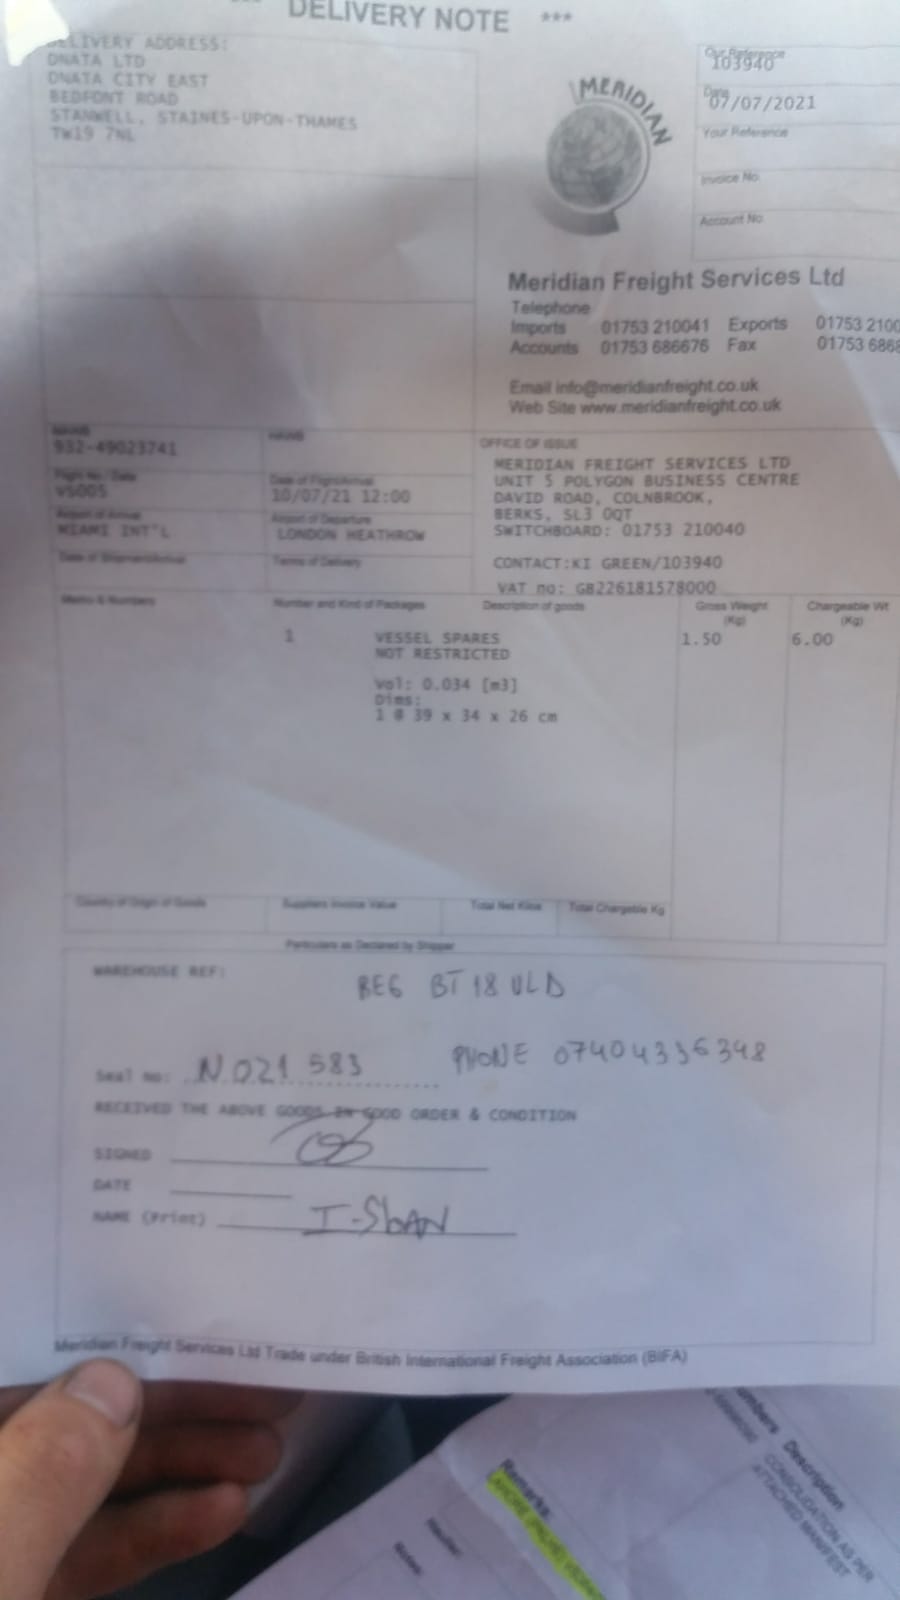 *** DELIVERY NOTE ***
DELIVERY ADDRESS:
DNATA LTD
DNATA CITY EAST
BEDFONT ROAD
STANWELL, STAINES-UPON-THAMES
TW19 7NL
MERIDIAN
Our Reference
103940
Date
07/07/2021
Your Reference
Invoice No.
Account No.
Meridian Freight Services Ltd
Telephone
Imports 01753 210041 Exports 01753 2100
Accounts 01753 686676 Fax 01753 686
Email info@meridianfreight.co.uk
Web Site www.meridianfreight.co.uk
MAWB
932-49023741
HAWB
Flight No / Date
VS005
Date of Flight/Arrival
10/07/21 12:00
Airport of Arrival
MIAMI INT'L
Airport of Departure
LONDON HEATHROW
Date of Shipment/Arrival
Terms of Delivery
OFFICE OF ISSUE
MERIDIAN FREIGHT SERVICES LTD
UNIT 5 POLYGON BUSINESS CENTRE
DAVID ROAD, COLNBROOK,
BERKS, SL3 0QT
SWITCHBOARD: 01753 210040
CONTACT:KI GREEN/103940
VAT no: GB226181578000
Marks & Numbers
Number and Kind of Packages
Description of goods
Gross Weight
(Kg)
Chargeable Wt
(Kg)
1 VESSEL SPARES 1.50 6.00
NOT RESTRICTED
Vol: 0.034 [m3]
Dims:
1 @ 39 x 34 x 26 cm
Country of Origin of Goods
Suppliers Invoice Value
Total Net Kilos
Total Chargeable Kg
Particulars as Declared by Shipper
WAREHOUSE REF:
BEG BT18 ULD
Seal no: N021583
PHONE 07404336348
RECEIVED THE ABOVE GOODS IN GOOD ORDER & CONDITION
SIGNED
DATE
NAME (Print)
Meridian Freight Services Ltd Trade under British International Freight Association (BIFA)
Description
CONSOLIDATION AS PER
ATTACHED MANIFEST
Remarks: